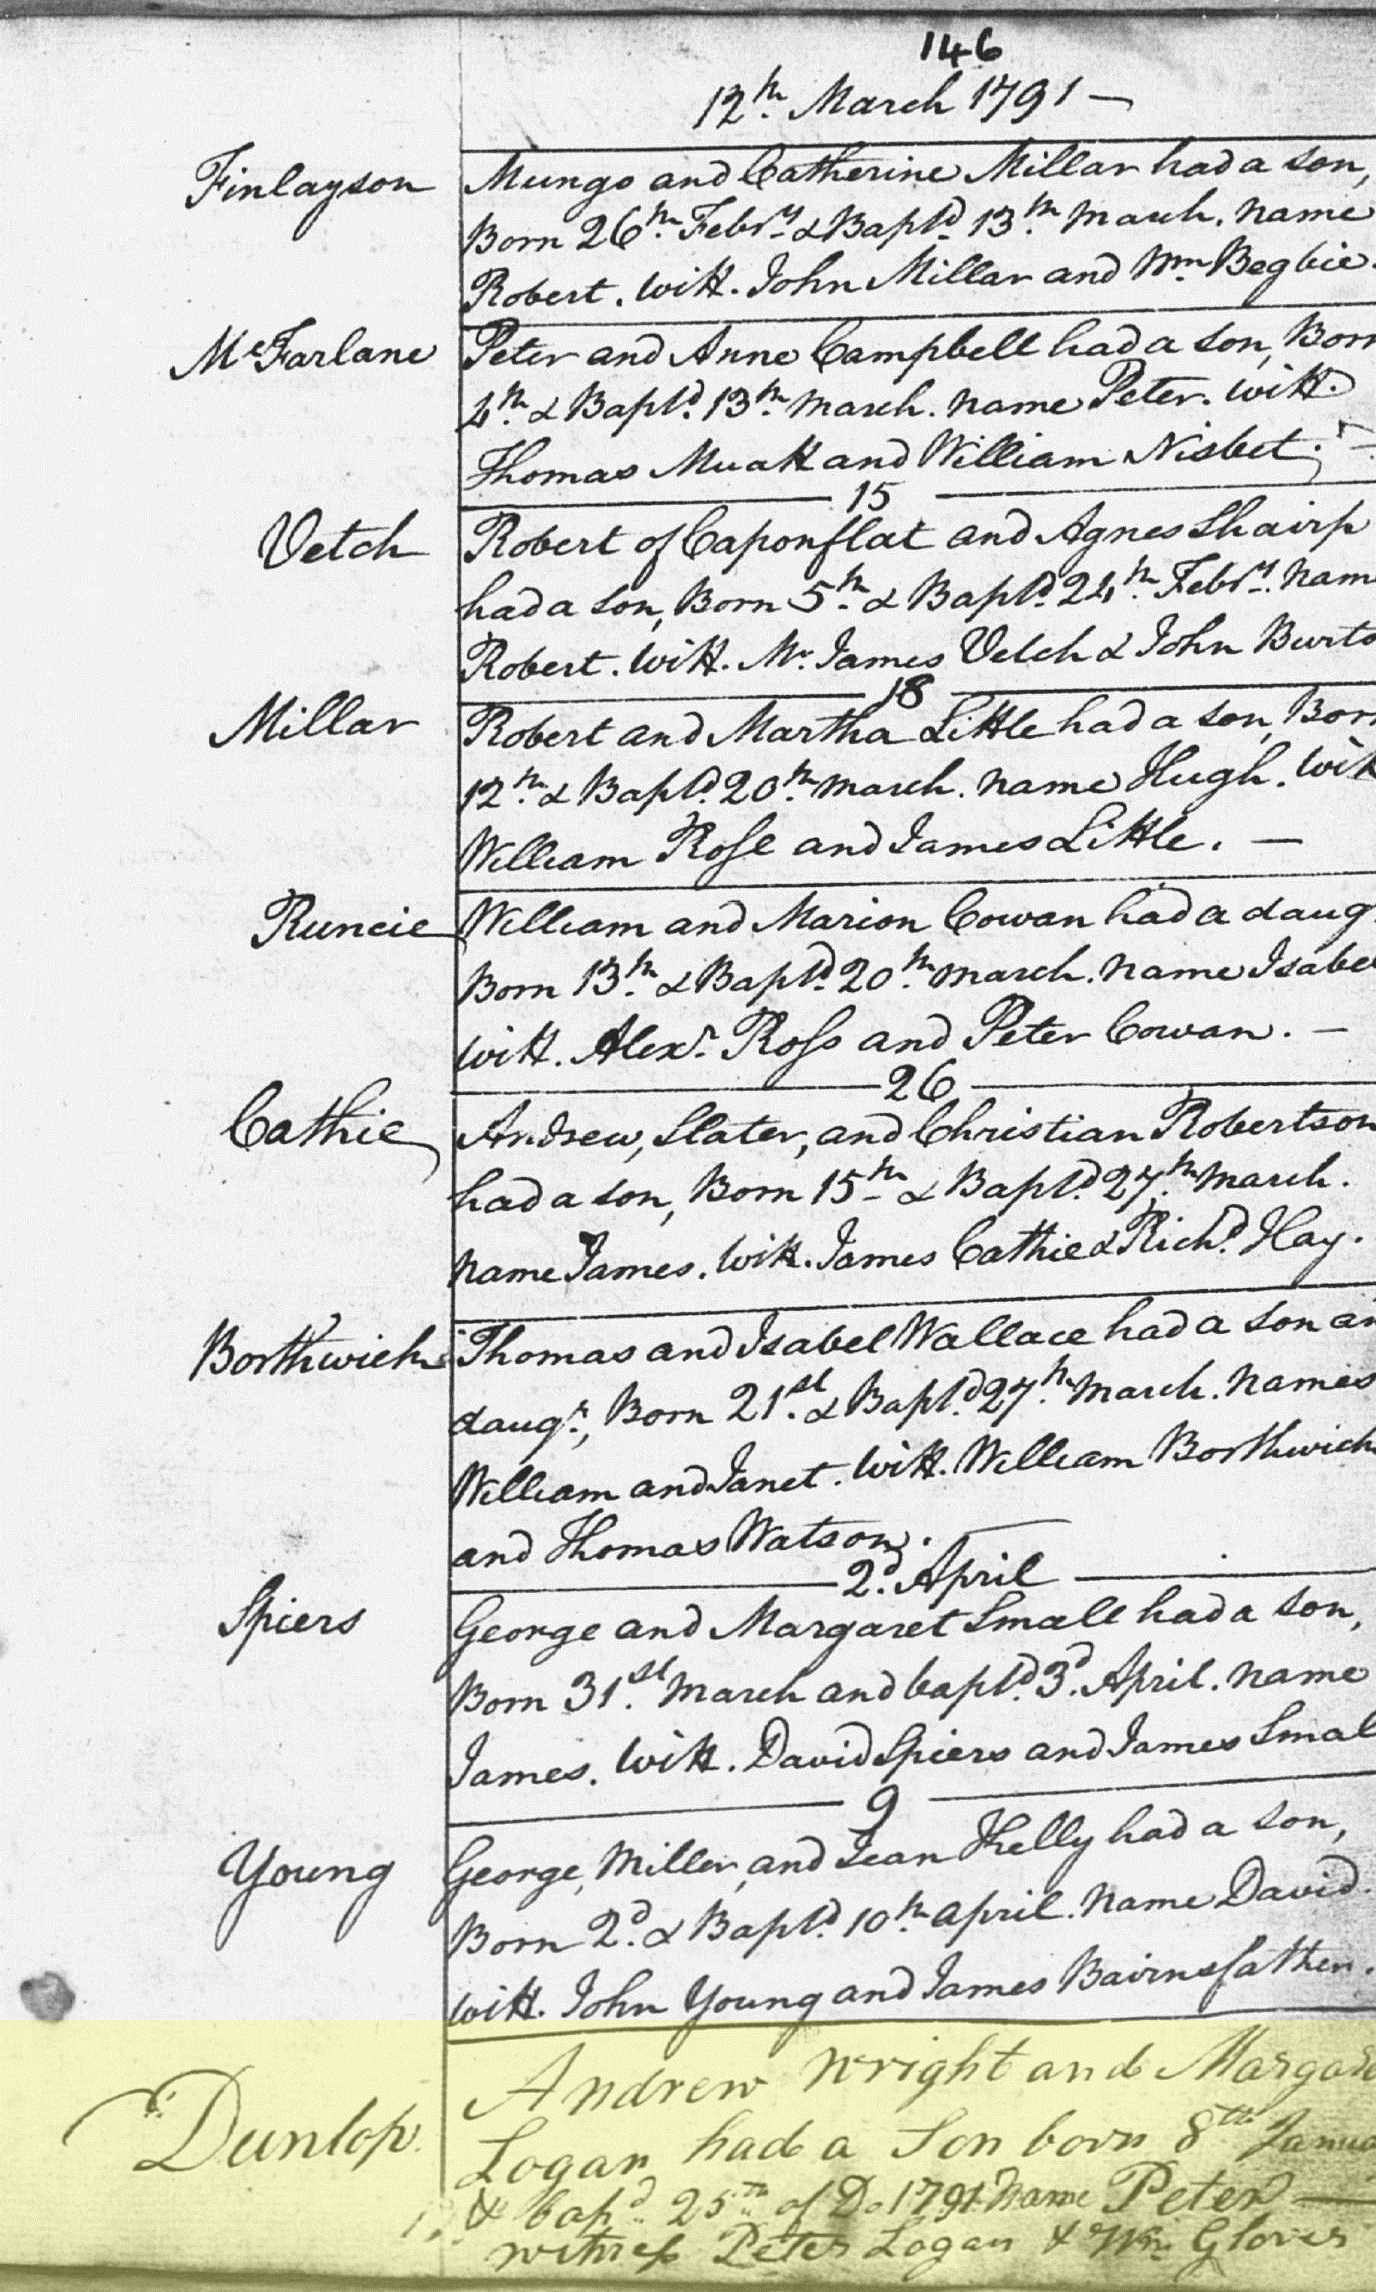 146
12th. March 1791 —
Finlayson
Mungo and Catherine Millar had a son,
Born 26th. Febry. & Baptd. 13th. March. name
Robert. Witt. John Millar and Wm. Begbie.
McFarlane
Peter and Anne Campbell had a son, Born
4th. & Baptd. 13th. March. name Peter. Witt.
Thomas Muatt and William Nisbet.
15
Vetch
Robert of Caponflat and Agnes Shairp
had a son, Born 5th. & Baptd. 24th. Febry. Nam
Robert. Witt. Mr. James Vetch & John Burto
18
Millar
Robert and Martha Little had a son, Born
12th. & Baptd. 20th. March. name Hugh. Wit
William Rose and James Little. —
Runcie
William and Marion Cowan had a daug
Born 13th. & Baptd. 20th. March. name Isabe
Witt. Alexr. Ross and Peter Cowan. —
26
Cathie
Andrew, Slater, and Christian Robertson
had a son, Born 15th & Baptd. 27th. March.
name James. Witt. James Cathie & Richd. Hay.
Borthwick
Thomas and Isabel Wallace had a son an
daugr., Born 21st. & Baptd. 27th. March. names
William and Janet. Witt. William Borthwick
and Thomas Watson.
2d. April
Spiers
George and Margaret Small had a son,
Born 31st. March and baptd. 3d. April. name
James. Witt. David Spiers and James Smal
9
Young
George, Miller, and Jean Kelly had a son,
Born 2d. & Baptd. 10th. april. name David.
Witt. John Young and James Bairnsfather.
Dunlop
Andrew Wright and Margare
Logan had a Son born 8th Janua
& bapd. 25th of Do 1791 Name Peter —
witness Peter Logan & Wm. Glover